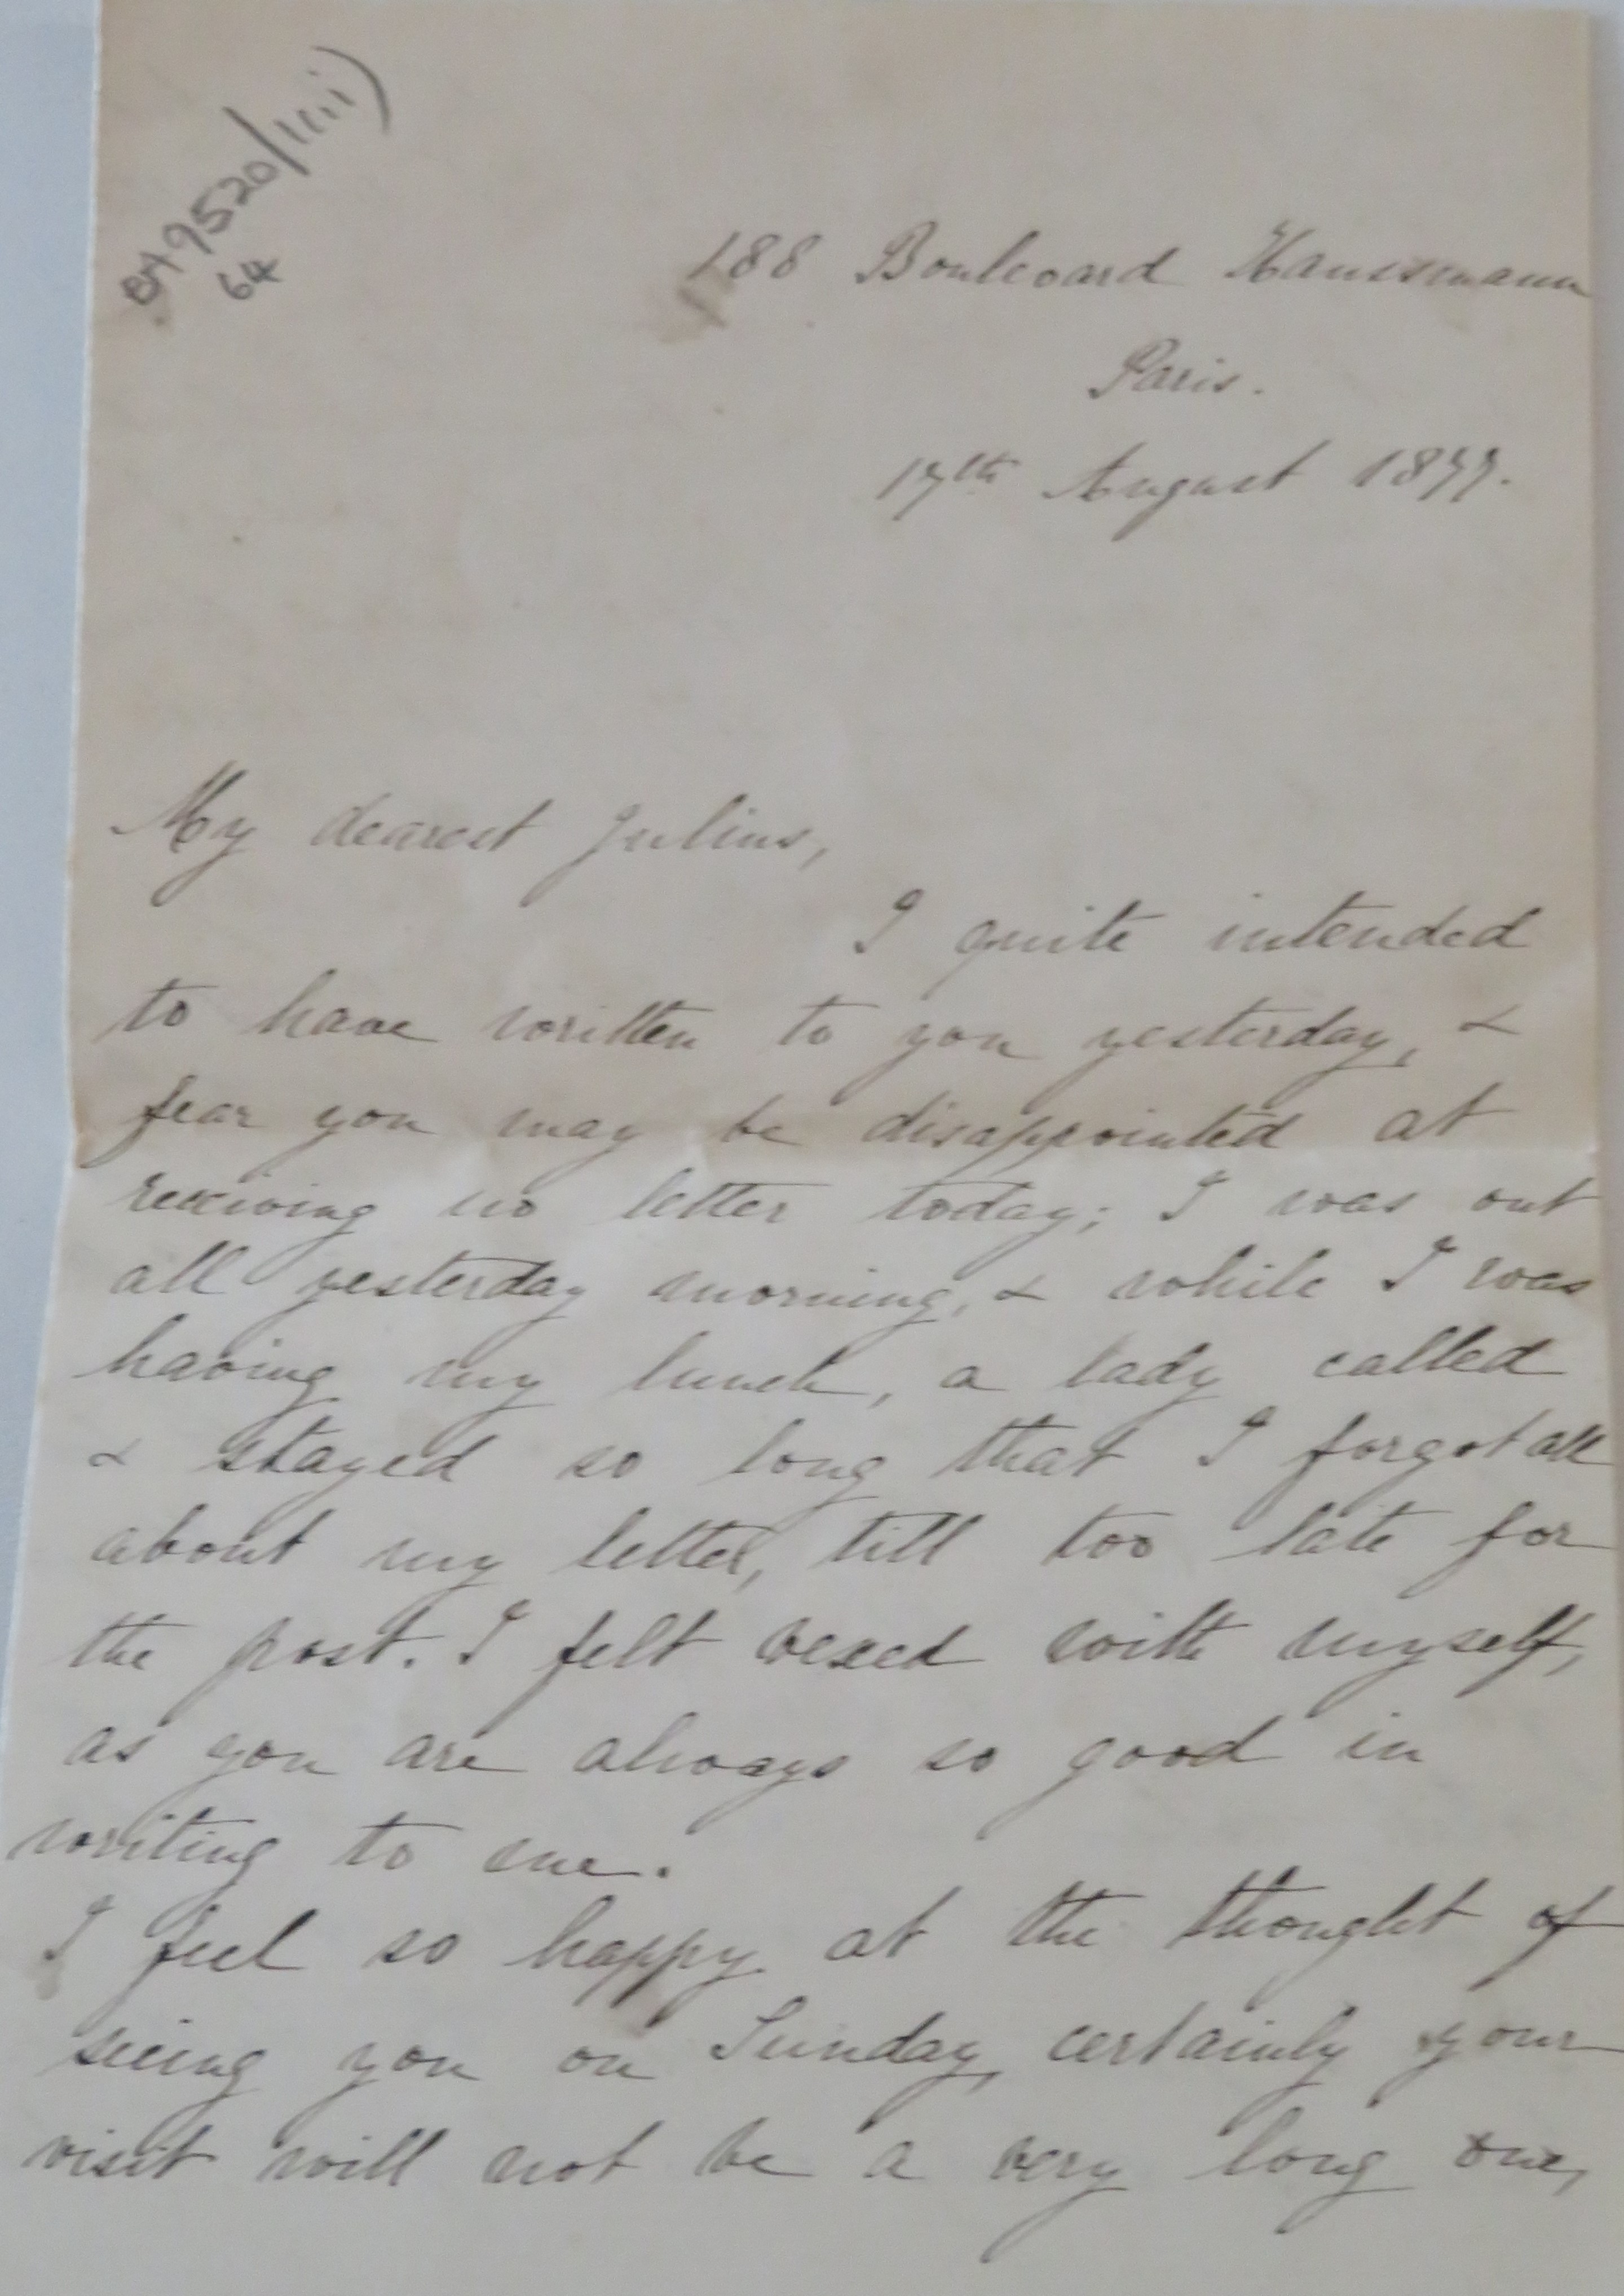 849520/1(iii)
64
188 Boulevard Haussmann
Paris.
17th August 1877.
My dearest Julius,
I quite intended
to have written to you yesterday, &
fear you may be disappointed at
receiving no letter today; I was out
all yesterday morning, & while I was
having my lunch, a lady called
& stayed so long that I forgot all
about my letter, till too late for
the post. I felt vexed with myself,
as you are always so good in
writing to me.
I feel so happy at the thought of
seeing you on Sunday, certainly your
visit will not be a very long one,